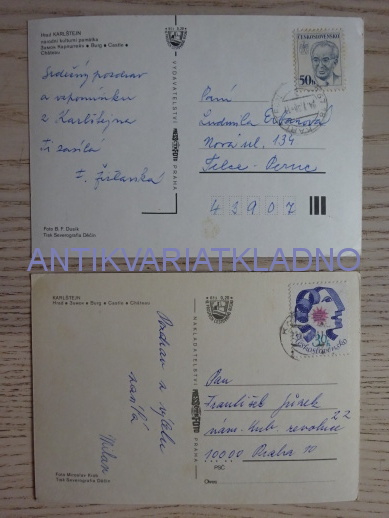 Hrad KARLŠTEJN
národní kulturní památka
Замок Карлштейн • Burg • Castle •
Château
Srdečný pozdrav
a vzpomínku
z Karlštejna
Ti zasílá
VYDAVATELSTVÍ
PRAHA
Foto B. F. Dusík
Tisk Severografia Děčín
ČESKOSLOVENSKO
50h
Paní
Ludmila
Nová ul. 134
Peruc
43907
ANTIKVARIATKLADNO
KARLŠTEJN
Hrad • Замок • Burg • Castle • Château
Pozdrav z výletu
zasílá
Milan
NAKLADATELSTVÍ
PRAHA
Tisk Severografia Děčín
30h
Československo
Pan
František
nám. Kub. revoluce 22
10000 Praha 10
PSČ
Okres